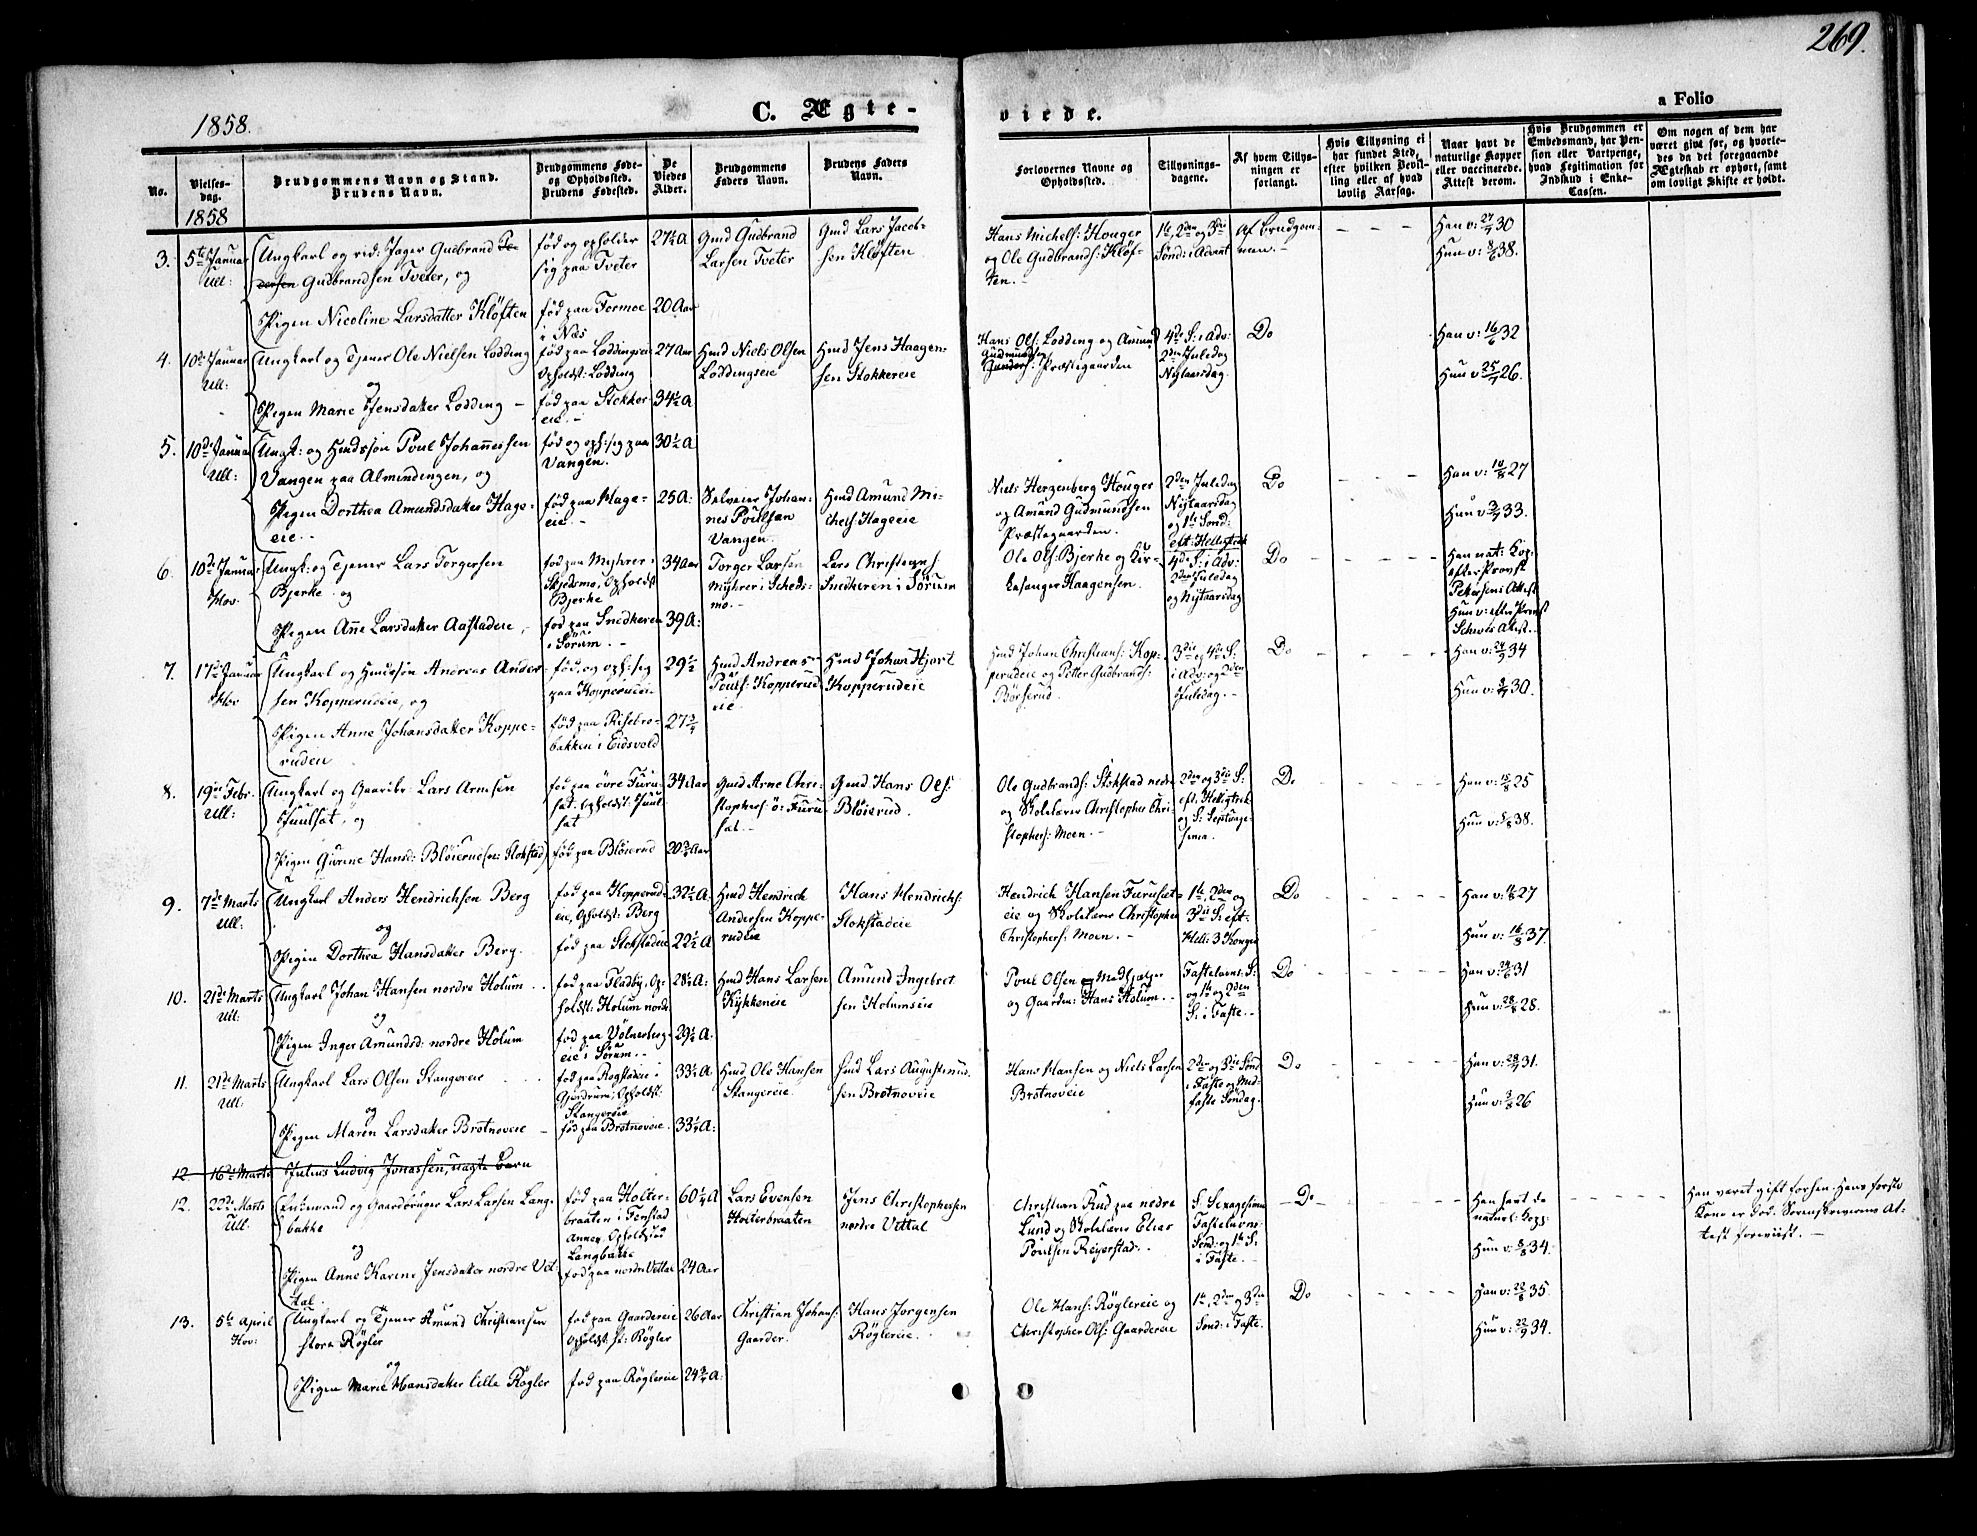 269.
1858.
C. Ægte-
viede.
a Folio
No.
Vielses-
dag.
1858
Brudgommens Navn og Stand.
Brudens Navn.
Brudgommens Føde-
og Opholdssted.
Brudens Fødested.
De
Viedes
Alder.
Brudgommens
Faders Navn.
Brudens Faders
Navn.
Forlovernes Navne og
Opholdssted.
Tillysnings-
dagene.
Af hvem Tillys-
ningen er
forlangt.
Hvis Tillysning ei
har fundet Sted,
efter hvilken Bevil-
ling eller af hvad
lovlig Aarsag.
Naar havt de
naturlige Kopper
eller vaccinerede.
Attest derom.
Hvis Brudgommen er
Embedsmand, har Pen-
sion eller Vartpenge,
hvad Legitimation for
Indskud i Enke-
Cassen.
Om nogen af dem har
været givt før, og hvorle-
des da det foregaaende
Ægteskab er ophørt, samt
om lovligt Skifte er holdt.
3.
5te Januar
Ull:
Ungkarl og rid: Jager Gudbrand Pe-
dersen Gudbrandsen Tveter, og
Pigen Nicoline Larsdatter Kløften
født og opholder
sig paa Tveter
fød paa Formoe
i Næs
27½ A
20 Aar
Gmd Gudbrand
Larsen Tveter
Gmd Lars Jacob-
sen Kløften
Hans Michels: Houger
og Ole Gudbrands: Kløf-
ten.
1ste, 2den og 3die
Sønd: i Advent
Af Brudgom-
men.
Han v: 27/7 30
Hun v: 8/6 38.
4.
10de Januar
Ull:
Ungkarl og Tjener Ole Nielsen Lødding
og
Pigen Marie Jensdatter Lødding
fød paa Løddingseie
Opholdst: Lødding
fød paa Stokker-
eie.
27 Aar
34½ A
Hmd Niels Olsen
Løddingseie
Hmd Jens Haagen-
sen Stokkereie
Hans Ols: Lødding og Amund
Gudmundsen
Præstegaarden
4de S: i Adv:
2den Juledag
Nytaarsdag.
Do
Han v: 16/6 32
Hun v: 25/7 26.
5.
10de Januar
Ull:
Ungk: og Hmdssøn Poul Johannessen
Vangen paa Almindingen, og
Pigen Dorthea Amundsdatter Hage-
eie.
fød og oph: sig paa
Vangen.
fød paa Hage-
eie.
30½ A
25 A:
Selveier Johan-
nes Poulsen
Vangen.
Hmd Amund Mi-
chels: Hageeie
Niels Herzenberg Houger
og Amund Gudmundsen
Præstegaarden.
2den Juledag
Nytaarsdag
og 1ste Sønd:
eft: Helligtrek
Do
Han v: 10/8 27
Hun v: 2/7 33.
6.
10de Januar
Hov.
Ungk: og Tjener Lars Torgersen
Bjerke og
Pigen Anne Larsdatter Aastadeie,
fød paa Myhrer i
Skjedsmo, Opholdst
Bjerke
fød paa Snedkeren
i Sørum.
34 Aar
39 A:
Torger Larsen
Myhrer i Skeds-
mo.
Lars Christians:
Snedkeren i Sørum
Ole Ols: Bjerke og Kir-
kesanger Haagensen.
4de S: i Adv:
2den Juledag
og Nytaarsdag
Do
Han nat: Kop.
efter Provst
Petersens Attest
Hun v: efter Provst
Attest.
7.
17de Januar
Hov
Ungkarl og Hmdssøn Andreas Ander-
sen Kopperudeie, og
Pigen Anne Johansdatter Koppe-
rudeie
fød og oph: sig
paa Kopperudeie
fød paa Risebro-
bakken i Eidsvold
29½
27¾
Hmd Andreas
Pouls: Kopperud
eie
Hmd Johan Hjort
Kopperudeie
Hmd Johan Christians: Kop-
perudeie og Petter Gudbrands:
Børserud.
3die og 4de S.
i Adv: og 2den
Juledag.
Do
Han v: 24/9 34
Hun v: 2/7 30.
8.
19de Febr.
Ull:
Ungkarl og Gaardbr: Lars Arnesen
Juulsat, og
Pigen Gurine Hansd: Bløierud (n: Stokstad)
fød paa øvre Furu-
sat. Opholdst: Juul-
sat
fød paa Bløierud
34 Aar
20¾ Aar
Gmd Arne Chri-
stophers: ø: Furu-
sat.
Gmd Hans Ols:
Bløierud.
Ole Gudbrands: Stokstad nedre
og Skolelærer Christopher Chri-
stophers: Moen.
2den og 3die S:
eft. Helligtrek
og S: Septuage-
sima.
Do
Han v: 15/8 25
Hun v: 5/8 38.
9.
7de Marts
Ull:
Ungkarl Anders Hendrichsen Berg
og
Pigen Dorthea Hansdatter Berg.
fød paa Kopperud-
eie, Opholdst: Berg
fød paa Stokstadeie
32½ A.
22½ A
Hmd Hendrich
Andersen Koppe-
rudeie
Hans Hendrichs:
Stokstadeie
Hendrich Hansen Furuset-
eie og Skolelærer Christopher
Christophers: Moen.
1ste, 2den og
3die S: eft-
Hell: 3 Konger
Do
Hun v: 16/8 37.
10.
21de Marts
Ull:
Ungkarl Johan Hansen nordre Holum
og
Pigen Inger Amundsd: nordre Holum
fød paa Fladby, Op-
holdst: Holum nordr
fød paa Vølnerberg-
eie i Sørum.
28½ A:
29½ A:
Hmd Hans Larsen
Kykkeneie
Amund Ingebret
sen Holumseie
Poul Olsen Medhjælper
og Gaardm: Hans Holum.
Fastelavns: S:
og 1ste og 2den
S: i Faste.
Do
Han v: 24/6 31
Hun v: 28/8 28.
11.
21de Marts
Ull:
Ungkarl Lars Olsen Stangereie
og
Pigen Maren Larsdatter Brotnoveie
fød paa Rogstadeie i
Gjerdrum, Opholdst:
Stangereie
fød paa Brotnoveie
33½ A
33¼ A:
Hmd, Ole Hansen
Stangereie.
Hmd Lars Augustinus-
sen Brotnoveie
Hans Hansen og Niels Larsen
Brotnoveie
2den og 3die Sønd
i Faste og Mid-
faste Søndag.
Do
Han v: 28/7 31.
Hun v: 3/8 26
12 16de Marts Julius Ludvig Jonassen, uægte Barn
12.
22de Marts
Ull:
Enkemand og Gaardbruger Lars Larsen Lang-
bakke
og
Pigen Anne Karine Jensdatter nordre Vet-
tal.
fød paa Holter-
braaten i Fenstad
Annex, Opholdssted
Langbakke
fød paa nordre Vettal
60¼ A
24 Aar
Lars Evensen
Holterbraaten
Jens Christophersen
nordre Vettal
Christian Rud paa nedre
Lund og Skolelærer Elias
Poulsen Reyerstad.
S: Sexagesima
Fastelavns-
Sønd: og 1ste S:
i Faste.
Do
Han havt de
naturl: Kopp:
Hun v: 8/8 34.
Han været gift forhen. Hans første
Kone er død. Sorenskriverens At-
test foreviist.
13.
5te April
Hov:
Ungkarl og Tjener Amund Christiansen
store Røgler
og
Pigen Marie Hansdatter lille Røgler
fød paa Gaardereie
Opholdst: St: Røgler
fød paa Røglereie
26 Aar
24¾ A:
Christian Johans:
Gaarder.
Hans Jørgensen
Røglereie.
Ole Hans: Røglereie og
Christopher Ols: Gaardereie
1ste, 2den og 3die
Sønd: i Faste.
Do
Han v: 22/8 35
Hun v: 22/9 34.